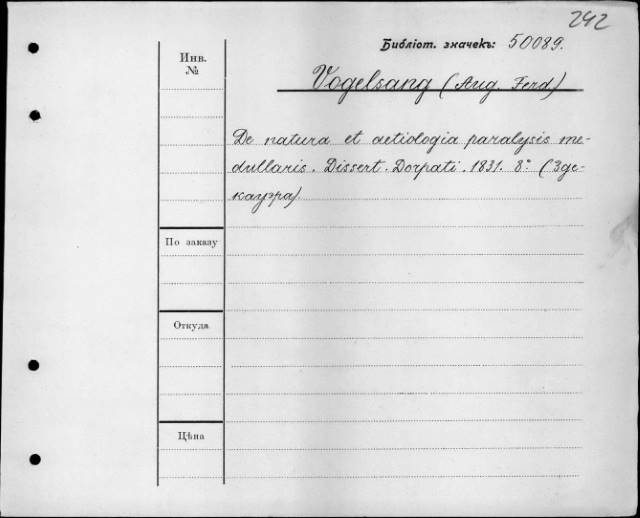 242
Библіот. значекъ: 50089.
Инв.
№
Vogelsang (Aug. Ferd)
De natura et aetiologia paralysis me-
dullaris. Dissert. Dorpati. 1831. 8° (Зде-
кауэра).
По заказу
Откуда
Цѣна